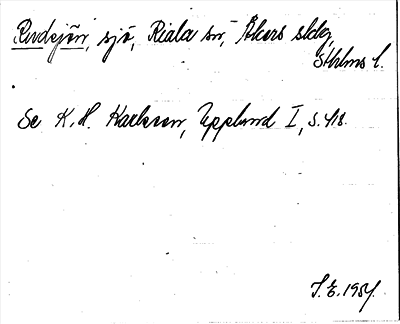 Rudsjön, sjö, Riala sn, Åkers sldg,
Sthlms l.
Se K. H. Karlsson, Uppland I, s. 418.
S. E. 1954.